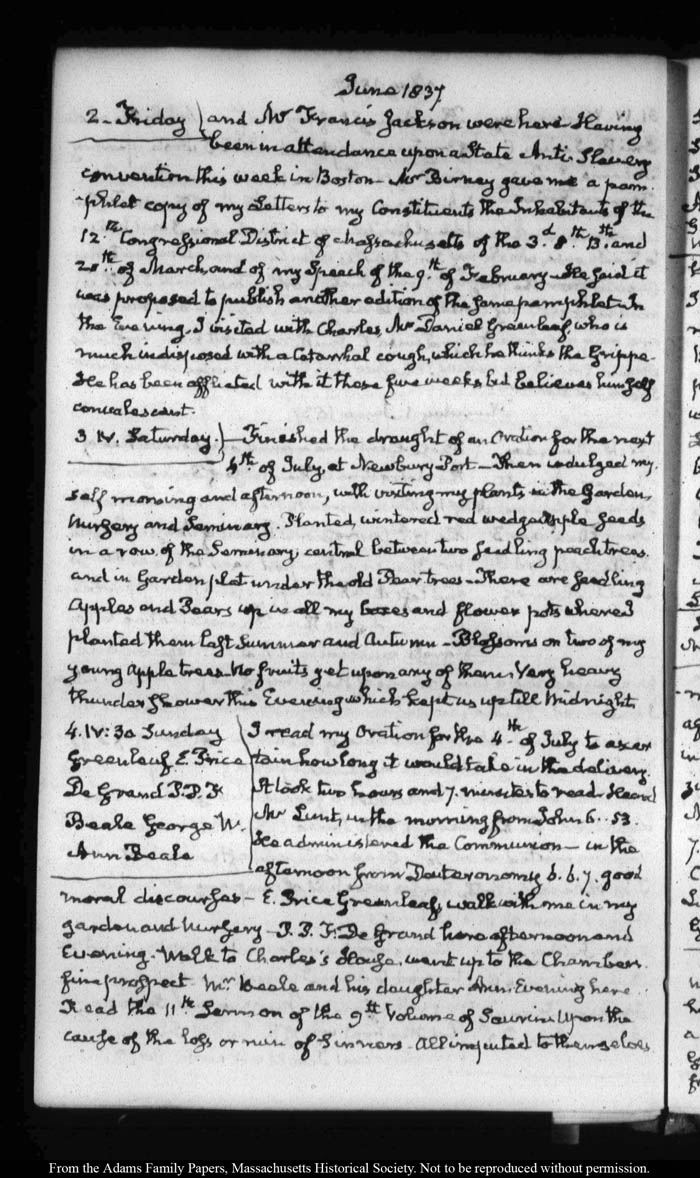 June 1837
2 - Friday } and Mr Francis Jackson were here. Having
been in attendance upon a State Anti-Slavery
convention this week in Boston - Mr Birney gave me a pam-
-phlet copy of my Letters to my Constituents the Inhabitants of the
12.th Congressional District of Massachusetts of the 3.d 8th 13.th and
20th of March, and of my Speech of the 9.th of February - He said it
was proposed to publish another edition of the same pamphlet. In
the Evening, I visited with Charles, Mr Daniel Greenleaf, who is
much indisposed with a Catarrhal cough, which he thinks the Grippe.
He has been afflicted with it these five weeks but believes himself
convalescent.
3 IV. Saturday. } Finished the draught of an Oration for the next
4th of July, at Newbury Port - Then indulged my-
self morning and afternoon, with visiting my plants in the Garden,
Nursery and Seminary. Planted, wintered red wedge apple seeds
in a row, of the Seminary, central between two seedling peach trees.
and in Garden plat under the old Pear trees - There are seedling
Apples and Pears up in all my boxes and flower pots where I
planted them last Summer and Autumn - Blossoms on two of my
young Apple trees - No fruits yet upon any of them. Very heavy
thunder shower this Evening which kept us up till Midnight.
4. IV: 30 Sunday
Greenleaf E. Price
De Grand P. P. F.
Beale George W.
Ann Beale
I read my Oration for the 4.th of July to ascer-
tain how long it would take in the delivery.
It took two hours and 7. minutes to read. Heard
Mr Lunt, in the morning from John 6. 53.
He administered the Communion - in the
afternoon from Deuteronomy 6. 6. 7. good
moral discourses - E. Price Greenleaf, walk with me in my
garden and Nursery - P. P. F. De Grand here afternoon and
Evening. Walk to Charles's House, went up to the Chambers.
fine prospect. Mr Beale and his daughter Ann, Evening here.
Read the 11th Sermon of the 9th Volume of Saurin Upon the
cause of the loss or ruin of Sinners - All imputed to themselves
From the Adams Family Papers, Massachusetts Historical Society. Not to be reproduced without permission.